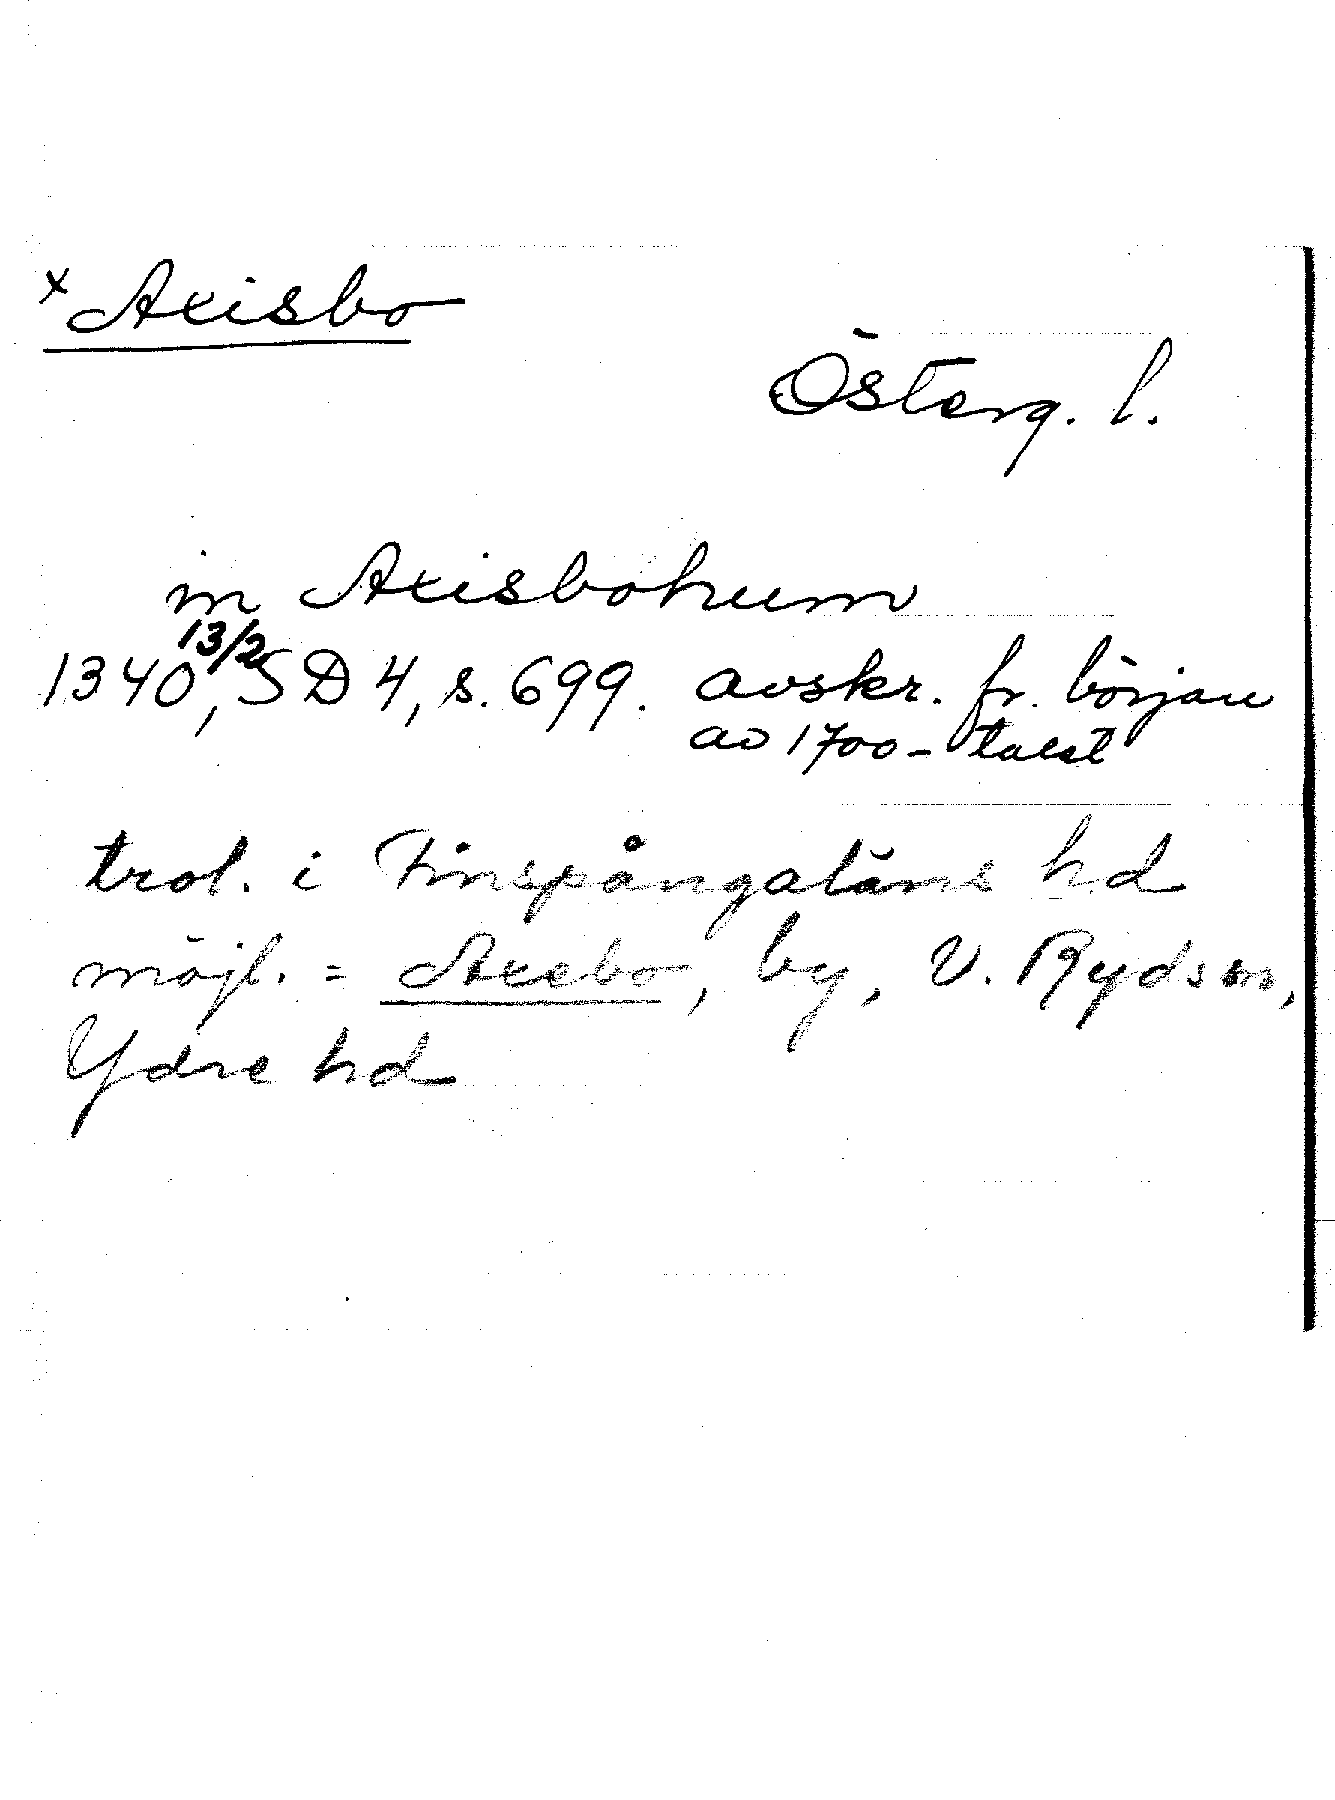 x Axisbo
Österg. l.
in Axisbohum
1340 13/2, SD 4, s. 699. avskr. fr. början
av 1700-talet
trol. i Finspångaläns hd
möjl. = Axebo, by, V. Ryds sn,
Ydre hd